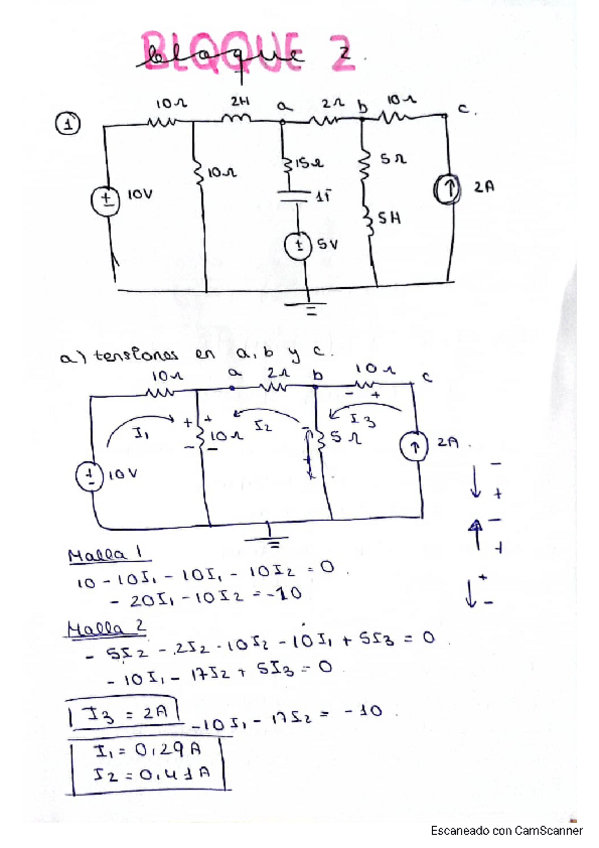 BLOQUE 2.
bloque
1
10Ω 2H a 2Ω b 10Ω c.
10V 10Ω 15Ω 1F 5V 5Ω 5H 2A
a) tensiones en a, b y c.
10Ω a 2Ω b 10Ω c
- +
I1 + + 10Ω I2 5Ω I3 2A.
- -
10V
-
+
-
+
+
-
Malla 1
10 - 10I1 - 10I1 - 10I2 = 0.
- 20I1 - 10I2 = -10
Malla 2
- 5I2 - 2I2 - 10I2 - 10I1 + 5I3 = 0.
- 10I1 - 17I2 + 5I3 = 0.
I3 = 2A -10I1 - 17I2 = -10.
I1 = 0,29A
I2 = 0,41A
Escaneado con CamScanner